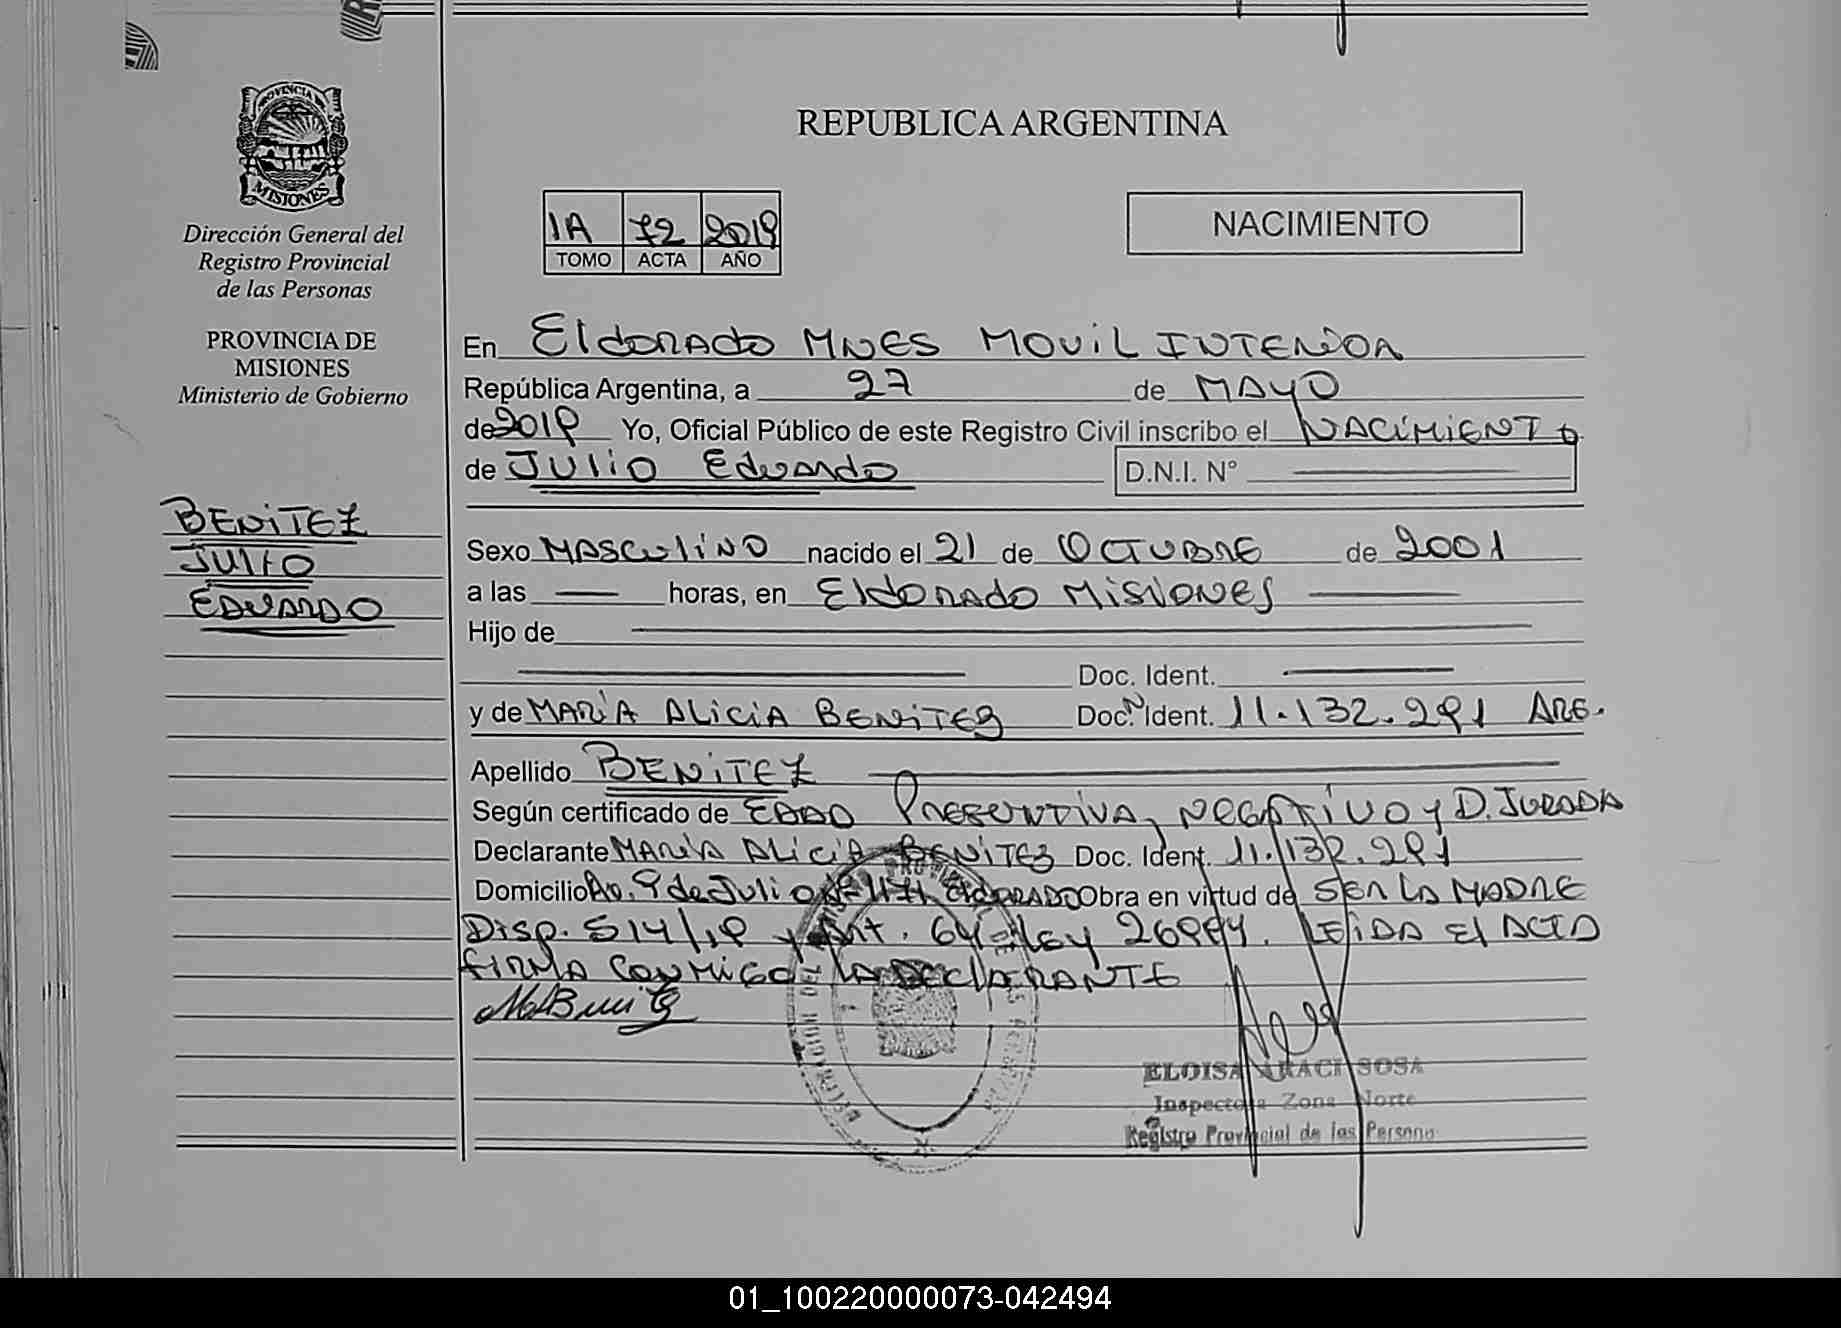 REPUBLICA ARGENTINA
PROVINCIA
MISIONES
Dirección General del
Registro Provincial
de las Personas
PROVINCIA DE
MISIONES
Ministerio de Gobierno
BENITEZ
JULIO
EDUARDO
1A 72 2019
TOMO ACTA AÑO
NACIMIENTO
En ElDORADO MNES MOVIL INTERIOR
República Argentina, a 27 de MAYO
de 2019 Yo, Oficial Público de este Registro Civil inscribo el NACIMIENTO
de JULIO EDUARDO D.N.I. N°
Sexo MASCULINO nacido el 21 de OCTUBRE de 2001
a las horas, en ElDORADO MISIONES
Hijo de
Doc. Ident.
y de MARIA ALICIA BENITEZ Doc. Ident. N° 11.132.291 ARG.
Apellido BENITEZ
Según certificado de EDAD PRESUNTIVA, NEGATIVO y D. JURADA
Declarante MARIA ALICIA BENITEZ Doc. Ident. 11.132.291
Domicilio Av. 9 de Julio ElDORADO Obra en virtud de SER LA MADRE
Disp. 514/19 y Art. 64 ley 26994. LEIDA El ACTA
FIRMA CONMIGO LA DECLARANTE
ELOISA ARACI SOSA
Inspectora Zona Norte
Registro Provincial de las Persona
01_100220000073-042494